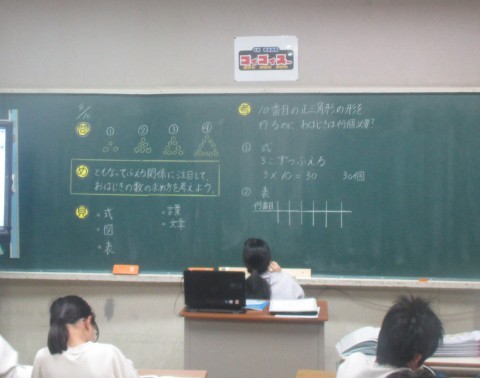 6/10
問 ① ② ③ ④
め ともなってふえる関係に注目して、
おはじきの数の求め方を考えよう。
見
・式
・図
・表
・言葉
・文章
考 10番目の正三角形の形を
作るのに、おはじきは何個必要?
① 式
3こずつふえる
3×10=30 30個
② 表
何番目